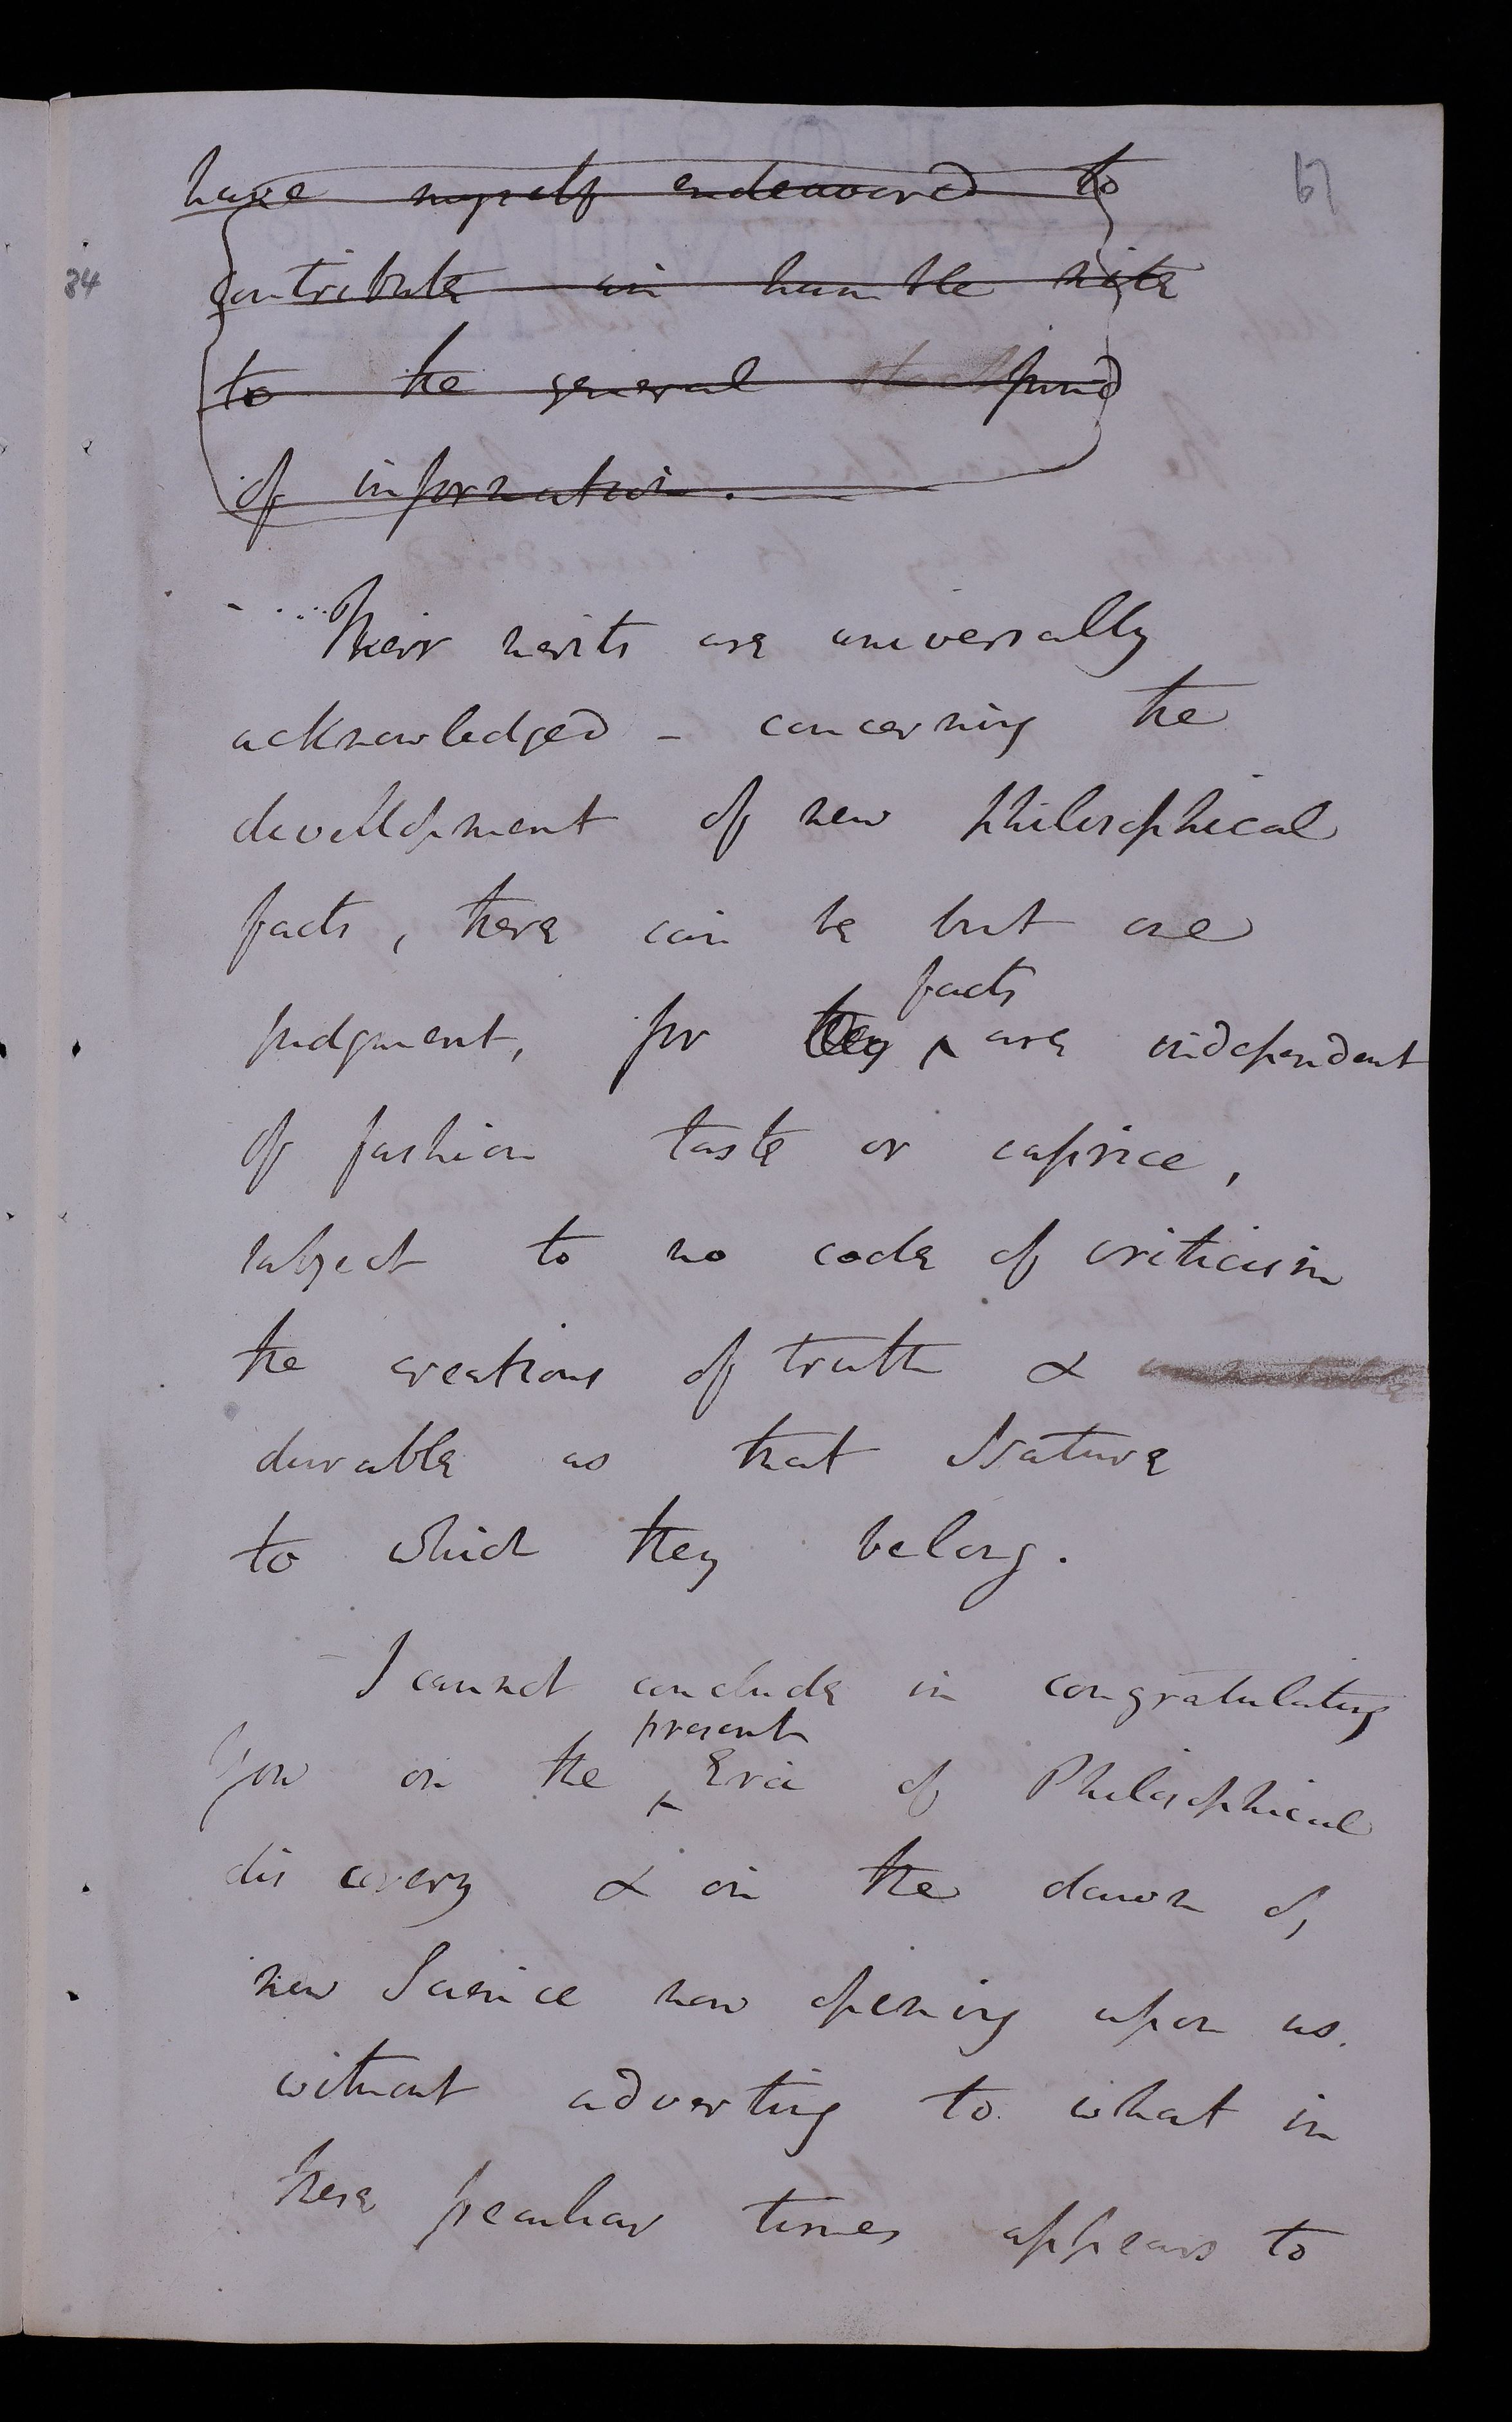 67
have myself endeavored to
84
contribute an humble mite
to the general stock fund
of information.
Their merits are universally
acknowledged - concerning the
devellopment of new philosophical
facts, there can be but one
facts
judgment, for they ^ are independent
of fashion taste or caprice,
subject to no code of criticism
the creations of truth &
durable as that Nature
to which they belong.
- I cannot conclude in congratulating
present
you on the ^ Era of Philosophical
discovery & on the dawn of
new Science now opening upon us.
without adverting to what in
these peculiar times appears to